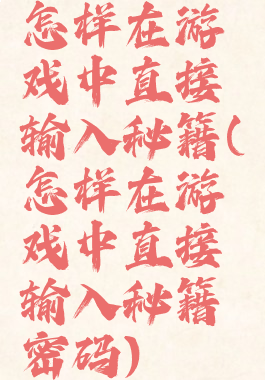 怎样在游
戏中直接
输入秘籍(
怎样在游
戏中直接
输入秘籍
密码)